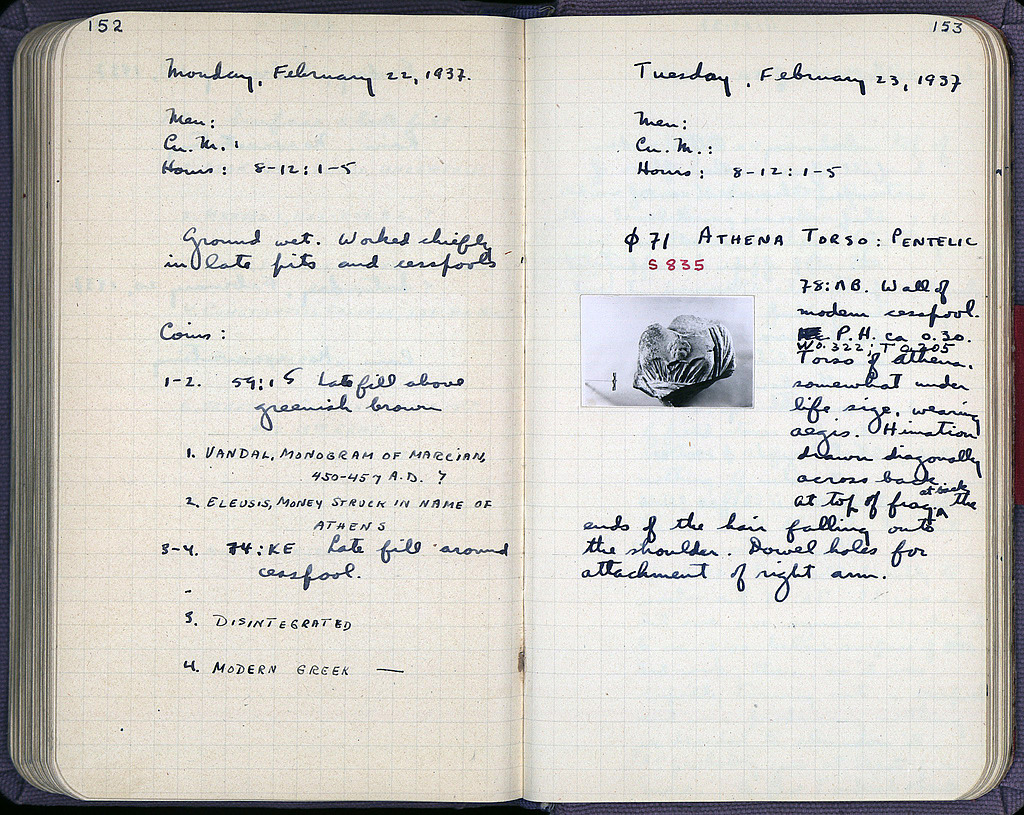 152
Monday, February 22, 1937.
Men:
Cu. M.:
Hours: 8-12: 1-5
Ground wet. Worked chiefly
in late pits and cesspools
Coins:
1-2. 59:ΙΣ Late fill above
greenish brown
1. VANDAL, MONOGRAM OF MARCIAN,
450-457 A.D. ?
2. ELEUSIS, MONEY STRUCK IN NAME OF
ATHENS
3-4. 74:KE Late fill around
cesspool.
3. DISINTEGRATED
4. MODERN GREEK —
153
Tuesday, February 23, 1937
Men:
Cu. M.:
Hours: 8-12: 1-5
φ 71 ATHENA TORSO: PENTELIC
S 835
78:ΛB. Wall of
modern cesspool.
P.H. ca 0.30.
W 0.322; T 0.205
Torso of Athena,
somewhat under
life size, wearing
aegis. Himation
drawn diagonally
across back.
at top of frag. at back the
ends of the hair falling onto
the shoulder. Dowel holes for
attachment of right arm.